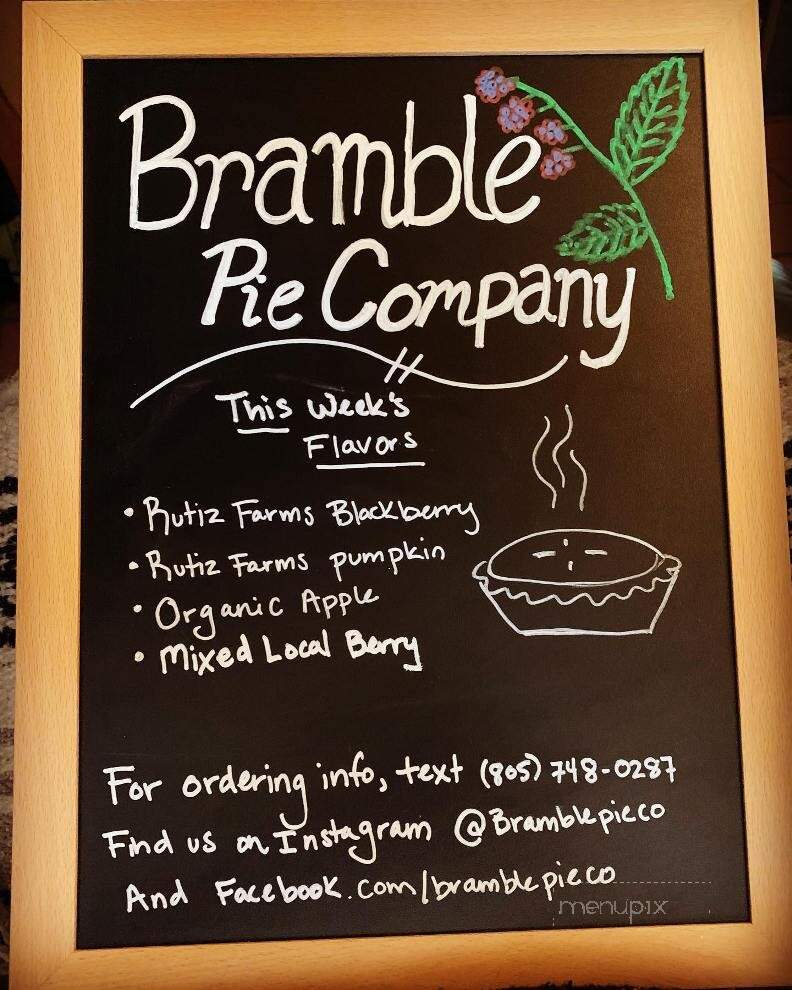 Bramble
Pie Company
This Week's
Flavors
• Rutiz Farms Blackberry
• Rutiz Farms pumpkin
• Organic Apple
• Mixed Local Berry
For ordering info, text (805) 748-0287
Find us on Instagram @Bramblepieco
And Facebook.com/bramblepieco
menupix